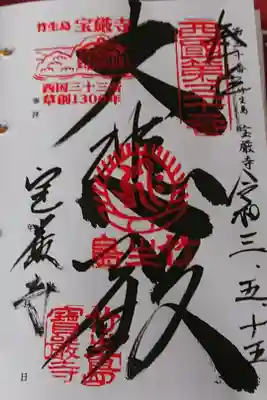 竹生島 宝厳寺
西国三十三所
草創1300年
奉拝
竹生島 宝厳寺
令和三・五・十五
大悲殿
島生竹
宝厳寺
竹生島
寶厳寺
日